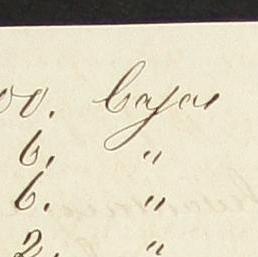 00. Cajas
6. "
6. "
2. "